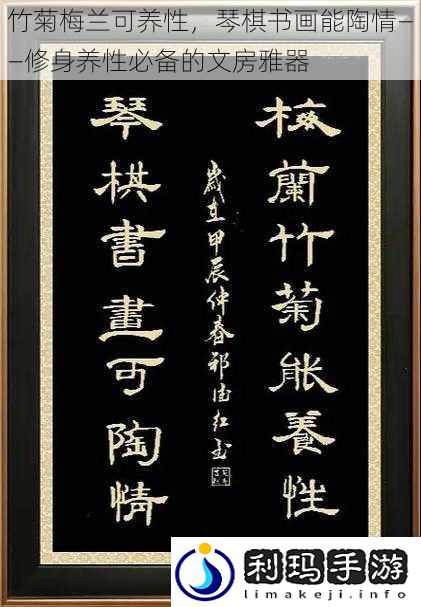 竹菊梅兰可养性，琴棋书画能陶情—
—修身养性必备的文房雅器
梅蘭竹菊能養性
歲在甲辰仲春祁红
琴棋書畫可陶情
利玛手游
limakeji.info